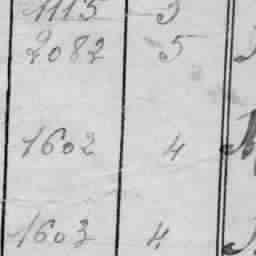 1115 3
2082 5
1602 4
1603 4